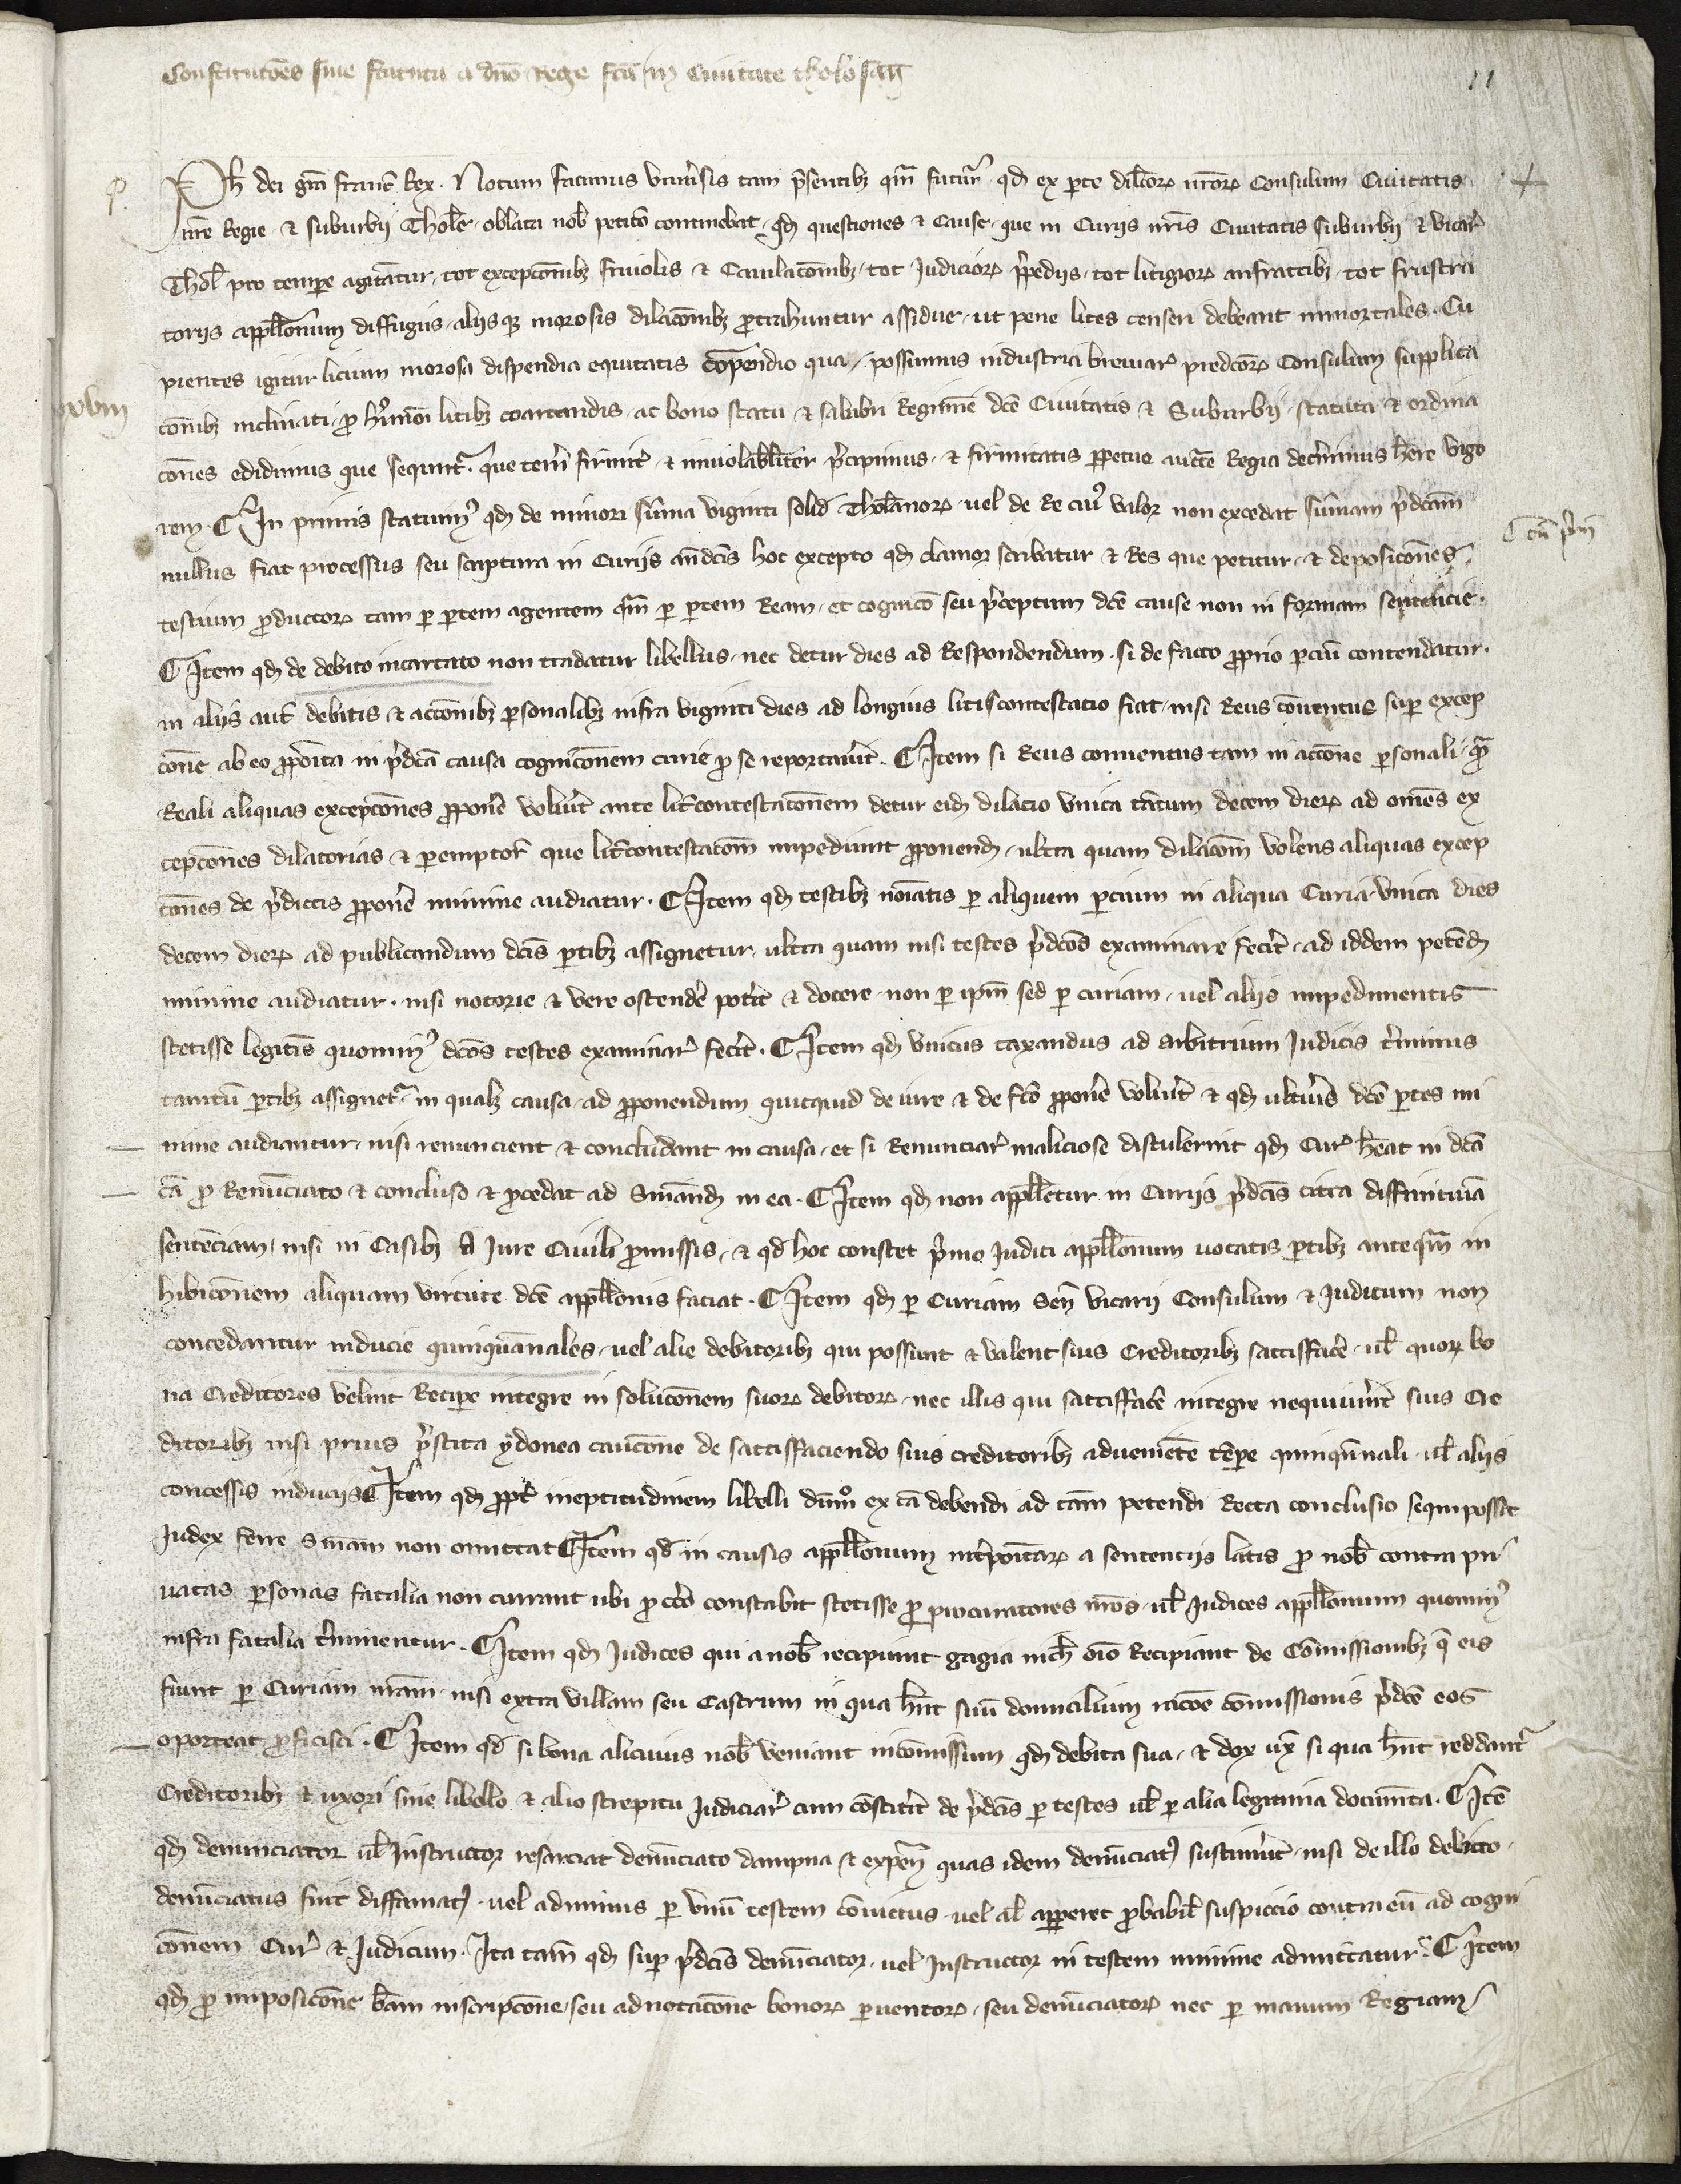 Constitutões siue statuta a dño Rege fca in Ciuitate tholosan
11
Ph dei gra franc Rex. Notum facimus vniusis tam psentibz qm futur qd ex pte dilcor nror Consulum Ciuitatis
nre Regie & suburbij Thole oblata nob peticō continebat qd questiones & cause que in Curijs nris Ciuitatis suburbij & vicar
Thol pro tempe agitatur tot excepcōnibz friuolis & Cauilacōnibz tot Judicior ppedijs tot litigior anfractibz tot frustra
torijs appllonum diffugijs alijsqz morosis dilacōnibz ptrahuntur assidue ut pene lites censeri debeant inmortales. Cu
pientes igitur licium morosa dispendia equitatis compendio qua possumus industria breuiar predcor Consulum supplica
conibz inclinati p hmoi litibz coartandis ac bono statu & salubri Regimine dce Ciuitatis & Suburbij statuta & ordina
cones edidimus que sequntr. que teneri firmit & inuiolabliter pcipimus & firmitatis ppetue aucte Regia decnimus here vigo
rem. In primis statuim qd de minori suma viginti solid Tholanor uel de Re cui valor non excedat sumam pdcam
Cu prm
nullus fiat processus seu scriptura in Curijs andcis hoc excepto qd clamor scribatur & Res que petitur & deposicones
testium pductor tam p ptem agentem qm p ptem Ream et cognico seu pceptum dce cause non in formam sentencie.
Item qd de debito incartato non tradatur libellus nec detur dies ad Respondendum si de facto pprio pciu contendatur.
in alijs aut debitis & accōnibz psonalibz infra viginti dies ad longius litiscontestacio fiat nisi Reus conuentus sup excep
cone ab eo pposita in pdca causa cognicōnem curie p se reportauit. Item si Reus conuentus tam in accōne psonali qm
Reali aliquas excepcōnes pponere voluit ante litcontestacōnem detur eid dilacio vnica tatum decem dier ad omes ex
cepcōnes dilatorias & pemptor que litcontestacōm impediunt pponend ultra quam dilacōm volens aliquas excep
cōnes de pdictis pponere minime audiatur. Item qd testibz noiatis p aliquem pcium in aliqua Curia vnica dies
decem dier ad publicandum dcis ptibz assignetur ultra quam nisi testes pdcos examinare fecit ad iddem petend
minime audiatur. nisi notorie & vere ostendere potit & docere non p ipm sed p curiam uel alijs impedimentis
stetisse legitis quomin dcos testes examinar fecit. Item qd vnicus taxandus ad arbitrium Judicis tminus
tantu ptibz assignetr in qualz causa ad pponendum quicquid de iure & de fco pponere voluit & qd ultius dce ptes mi
nime audiantur nisi renuncient & concludant in causa et si Renunciar maliciose distulerint qd Cur heat in dca
ca p Renunciato & concluso & pcedat ad Smand in ea. Item qd non appelletur in Curijs pdcis citra diffinitiua
sentenciam nisi in Casibz A Jure Ciuili pmissis & qd hoc constet primo Judici appllonum uocatis ptibz anteqm in
hibicōnem aliquam virtute dce appllonis faciat. Item qd p Curiam Sen Vicarij Consulum & Judicum non
concedantur inducie quinquanales uel alie debitoribz qui possunt & valent suis Creditoribz sattisfacere ul quor bo
na Creditores velint Recipe integre in solucōnem suor debitor nec illis qui sattisffacere integre nequiuit suis Cre
ditoribz nisi prius pstita ydonea caucōne de sattisffaciendo suis creditoribz adueniete tempe quinqnnali ul alijs
concessis inducijs Item qd ppt ineptitudinem libelli dumo ex ca debendi ad cam petendi Recta conclusio sequi possit
Judex ferre Smam non omittat Item qd in causis appllonum intpoitar a sentencijs latis p nob contra pri
uatas psonas fatalia non currant ubi p cto constabit stetisse p procuratores nros ul Judices appllonum quomin
infra fatalia tminentur. Item qd Judices qui a nob recipiunt gagia nich oio Recipiant de Comissionibz q eis
fiunt p Curiam nram nisi extra villam seu Castrum in qua hnt suu domicilium racoe comissionis pdce eos
oporteat pficisci. Item qd si bona alicuius nob veniant incomissum qd debita sua & dox ux si qua hnt reddantr
Creditoribz & uxori sine libello & alio strepitu Judiciar cum constitit de pdcis p testes ul p alia legitima documta. Ite
qd denunciator ul Instructor resarciat denunciato dampna & expen quas idem denunciat sustinuit nisi de illo delicto
denunciatus fuit diffamat uel adminus p vnu testem conuictus uel al apperet pbabil suspiccio contra eu ad cogni
cōnem Cur & Judicium. Ita tam qd sup pdcis denunciator uel Instructor in testem minime admittatur. Item
qd p imposicōne bam inscripcōne seu adnotacōne bonor puentor seu denunciator nec p manum Regiam